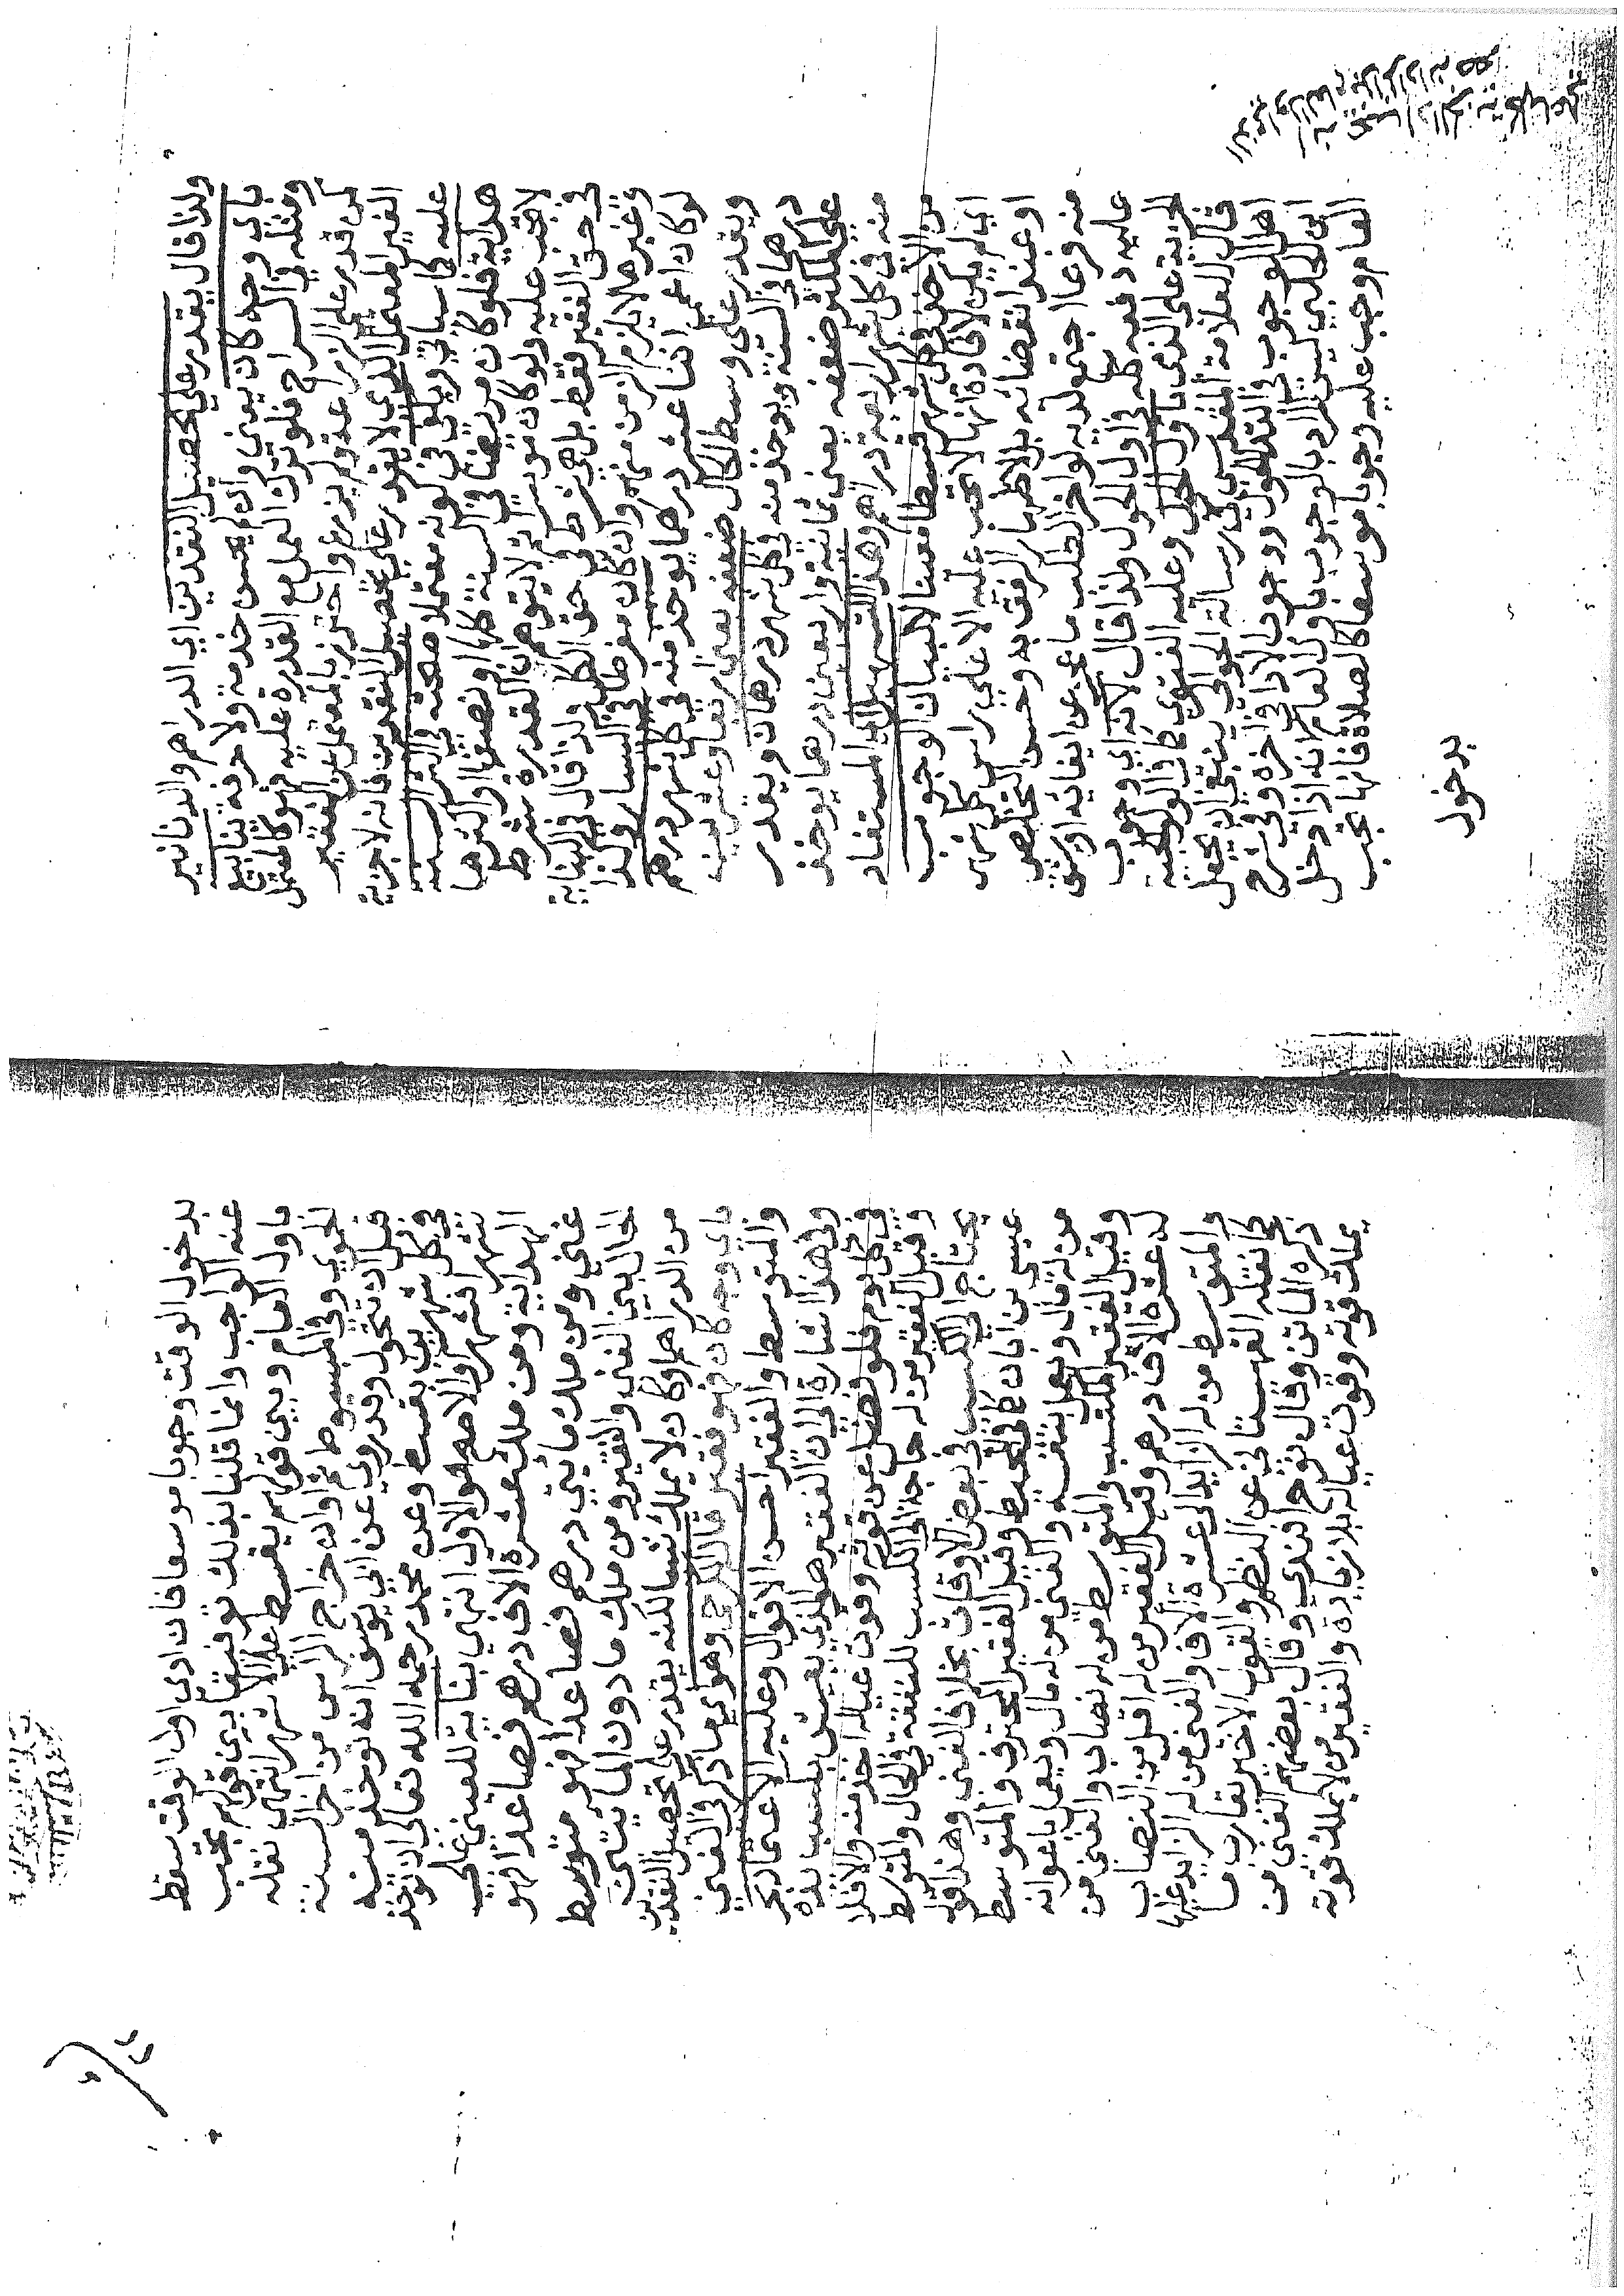 ولذا قال يقدر على تحصيل النقدين اي الدراهم والدنانير
باي وجه كان يعني وان لم يحسن خدمة ولا حرفة بناية
ومثله في السراج فلو ترك العمل مع القدرة عليه فهو كالمعتمل
كمن قدر على الزراعة ولم يزرع واحترز بالمعتمل عن الفقير
الغير المعتمل الذي لا يقدر على تحصيل النقدين فانه لا جزية
عليه كما سياتي ويكتفى في كونه معتملا صحته في اكثر السنة
هداية فلو كان مريضا في السنة كلها او نصفها او اكثرها
لا تجب عليه ولو كان موسرا ثم لا يتوهم ان القدرة شرط
في حق الفقير فقط بل هي شرط في حق الكل ولذا قال في البناية
وغيرها لا يلزم الزمن منهم وان كان مفرطا في اليسار ولذا
لو كان اعمى اثنا عشر درهما يوخذ منه في كل شهر درهم
ويقدر على وسط الحال ضعفه يعني اربعا وعشرين
درهما في السنة ويوخذ منه في كل شهر درهمان ويقدر
على المكثر ضعفه يعني ثمانية واربعين درهما يوخذ
منه في كل شهر اربعة دراهم وهذا التسهيل اي المستفاد
من الاخذ في كل شهر قسطا معينا لا لبيان الوجوب
اي لم يكن لافادة انها لا تجب عليه الا على راس كل شهر
او عند انقضائه بل لاظهار الرفق به وحسن التخلص
منه وعما اجتمع لديه لو اخر الطلب ما عجز عن ايفائه او يشق
عليه دفعه كله في اول الحول ولذا قال لانه اي وجوب
الجزية على الذمي باول الحول وعليه الفتوى كما في الولوالجية
قال العلامة المقدسي في رسالة ينبغي ان يحمل
الوجوب في اول الحول ووجوب الاداء في اخره وفي شرح
ابن الحلبي ليس المراد بالوجوب باول العام انه اذا دخل
العام وجب عليه وجوبا موسعا كالصلاة فانها تجب
بدخول
بدخول الوقت وجوبا موسعا فان ادى اول الوقت سقط
عنه الواجب وانما قلنا بذلك توفيقا بين قولهم تجب
باول العام وبين قولهم يقسط على الاشهر انتهى نقله
الحوي وفي المبسوط ثم اوان خراج الراس من اخر السنة
قبل ان تتحول وقد روي عن ابي يوسف انه توخذ منه
في كل شهرين بقسط وعن محمد رحمه الله تعالى ان توخذ
شهرا فشهرا والاصح هو الاول انتهى بناية للعيني على
الهداية ومن ملك عشرة الاف درهم فصاعدا فهو
غني ومن ملك مايتي درهم فصاعدا فهو متوسط
الحال بين الغني والفقير ومن ملك ما دون المايتين
من الدراهم او كان لا يملك شيئا لكنه يقدر على تحصيل النقدين
باي وجه كان فهو فقير قاله الكرخي وهو اي ما ذكر في الغني
والمتوسط والفقير احسن الاقوال وعليه الاعتماد بحر
وفي هذا اشارة الى ان الفقير هو الذي يعيش بكسب يده
في كل يوم فلو فضل عن قوته وقوت عياله اخذ منه والا فلا
وقيل الفقير من له حاجة الى الكسب للنفقة في الحال والمتوسط
يحتاج الى الكسب في بعض الاوقات بخلاف الغني وهذا قول
عيسى بن ابان كما في المحيط وقيل الفقير المحترف والمتوسط
من له مال ويعمل بنفسه والغني من له مال ويعمل باعوانه
وقيل الفقير المكتسب والمتوسط من له نصاب والغني من
له عشرة الاف درهم وقيل الفقير من له اقل من النصاب
والمتوسط من له الزايد الى عشرة الاف والغني من له الزايد عليها
كما نقله القهستاني عن النظم والقول الاخير يقارب ما
ذكره الماتن وقال نوح افندي وقال بعضهم الغني من
يملك قوته وقوت عياله بلا زيادة والفقير من لا يملك قوته